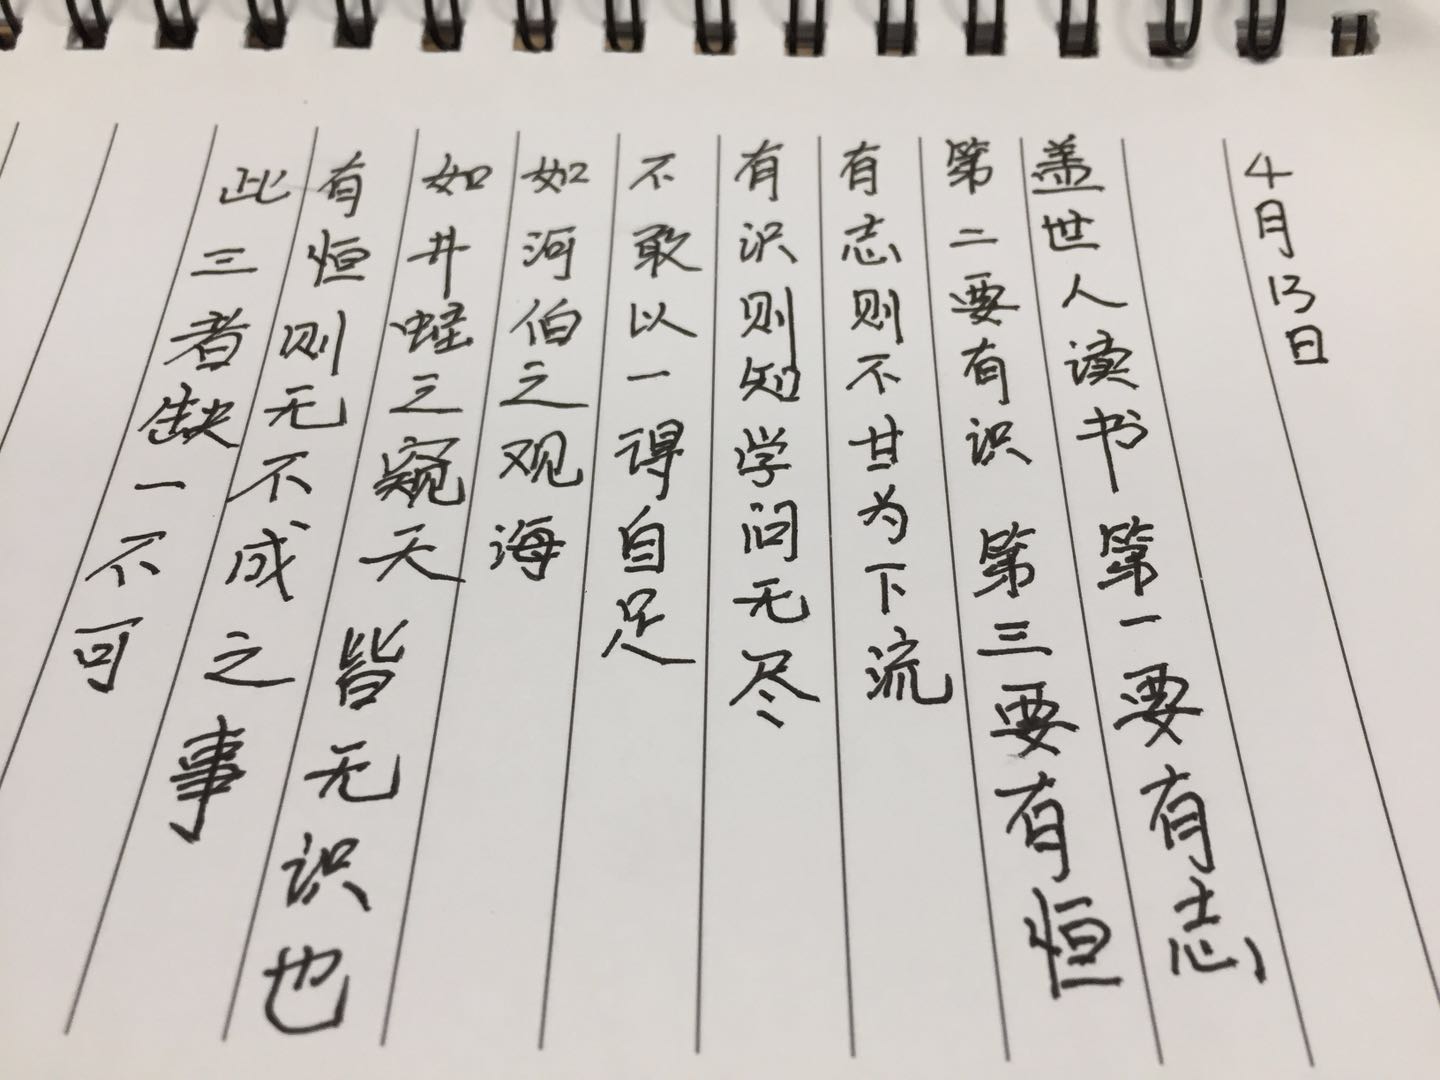 4月13日
盖世人读书 第一要有志
第二要有识 第三要有恒
有志则不甘为下流
有识则知学问无尽
不敢以一得自足
如河伯之观海
如井蛙之窥天 皆无识也
有恒则无不成之事
此三者缺一不可